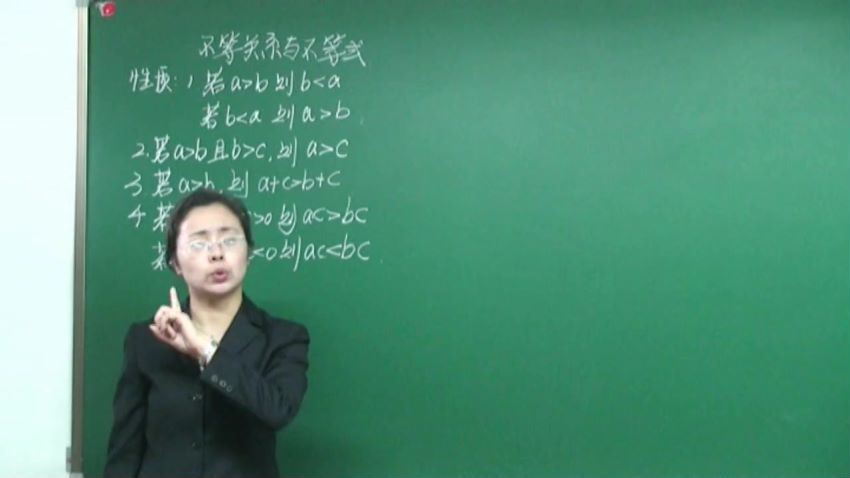 不等关系与不等式
性质:1 若a>b则b<a
若b<a 则a>b.
2.若a>b且b>c,则a>c
3 若a>b,则a+c>b+c
4 若 >0则ac>bc
若 <0则ac<bc.